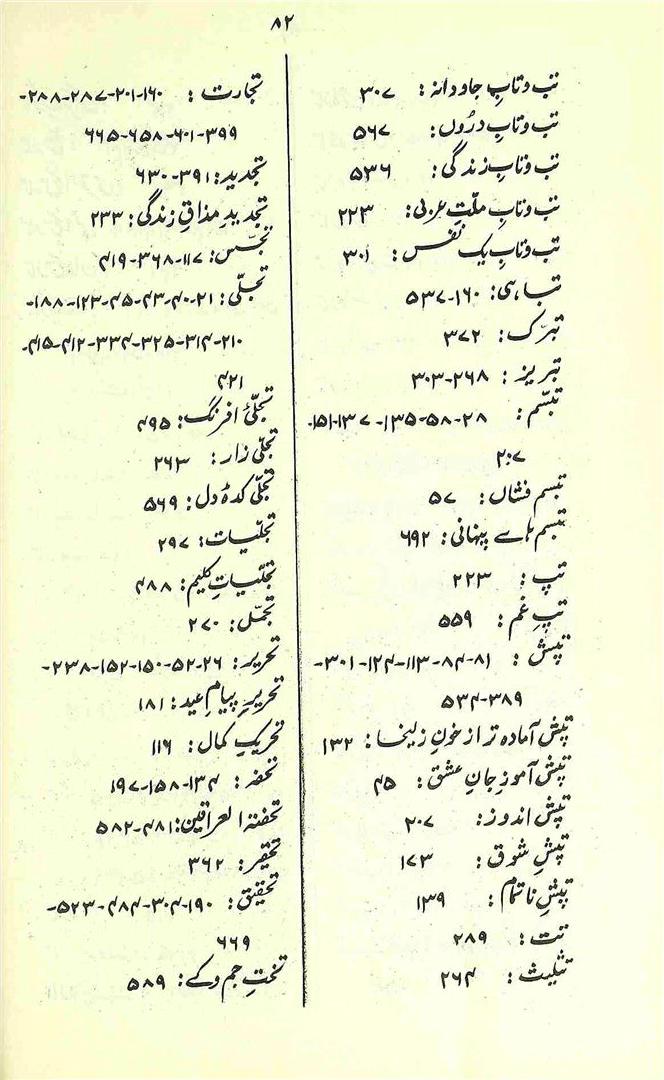 ۸۲
تب و تابِ جاودانہ: ۳۰۷
تب و تابِ درُوں: ۵۶۷
تب و تابِ زندگی: ۵۳۶
تب و تابِ ملّتِ عربی: ۲۲۳
تب و تابِ یک نفس: ۳۰۱
تباہی: ۱۶۰-۵۳۷
تبرّک: ۳۷۲
تبریز: ۲۶۸-۳۰۳
تبسّم: ۲۸-۵۸-۱۳۵-۱۳۷-۱۵۱-
۲۰۷
تبسم فشاں: ۵۷
تبسم ہائے پنہانی: ۶۹۲
تپ: ۲۲۳
تپِ غم: ۵۵۹
تپش: ۸۱-۸۴-۱۱۳-۱۲۴-۳۰۱-
۳۸۹-۵۳۴
تپش آمادہ تر از خونِ زلیخا: ۱۳۲
تپش آموزِ جانِ عشق: ۴۵
تپش اندوز: ۲۰۷
تپشِ شوق: ۱۷۳
تپشِ ناتمام: ۱۳۹
تت: ۲۸۹
تثلیث: ۲۶۴
تجارت: ۱۶۰-۲۰۱-۲۸۷-۲۸۸-
۳۹۹-۶۰۱-۶۵۸-۶۶۵
تجدید: ۳۹۱-۶۳۰
تجدیدِ مذاقِ زندگی: ۲۳۳
تجسّس: ۱۱۷-۳۶۸-۴۱۹
تجلّی: ۲۱-۴۰-۴۳-۴۵-۱۲۳-۱۸۸-
۲۱۰-۳۱۴-۳۲۵-۳۳۴-۴۱۲-۴۱۵-
۴۲۱
تجلّیٔ افرنگ: ۴۹۵
تجلّی زار: ۲۶۳
تجلّی کدۂ دل: ۵۶۹
تجلّیات: ۲۹۷
تجلّیاتِ کلیم: ۴۸۸
تجمّل: ۲۷۰
تحریر: ۲۶-۵۲-۱۵۰-۱۵۲-۲۳۸-
تحریرِ پیامِ عید: ۱۸۱
تحریکِ کمال: ۱۱۶
تحفہ: ۱۳۴-۱۵۸-۱۹۷
تحفتہ العراقین: ۴۸۱-۵۸۲
تحقیر: ۳۶۲
تحقیق: ۱۹۰-۳۰۴-۴۸۴-۵۲۳-
۶۶۹
تختِ جم و کے: ۵۸۹